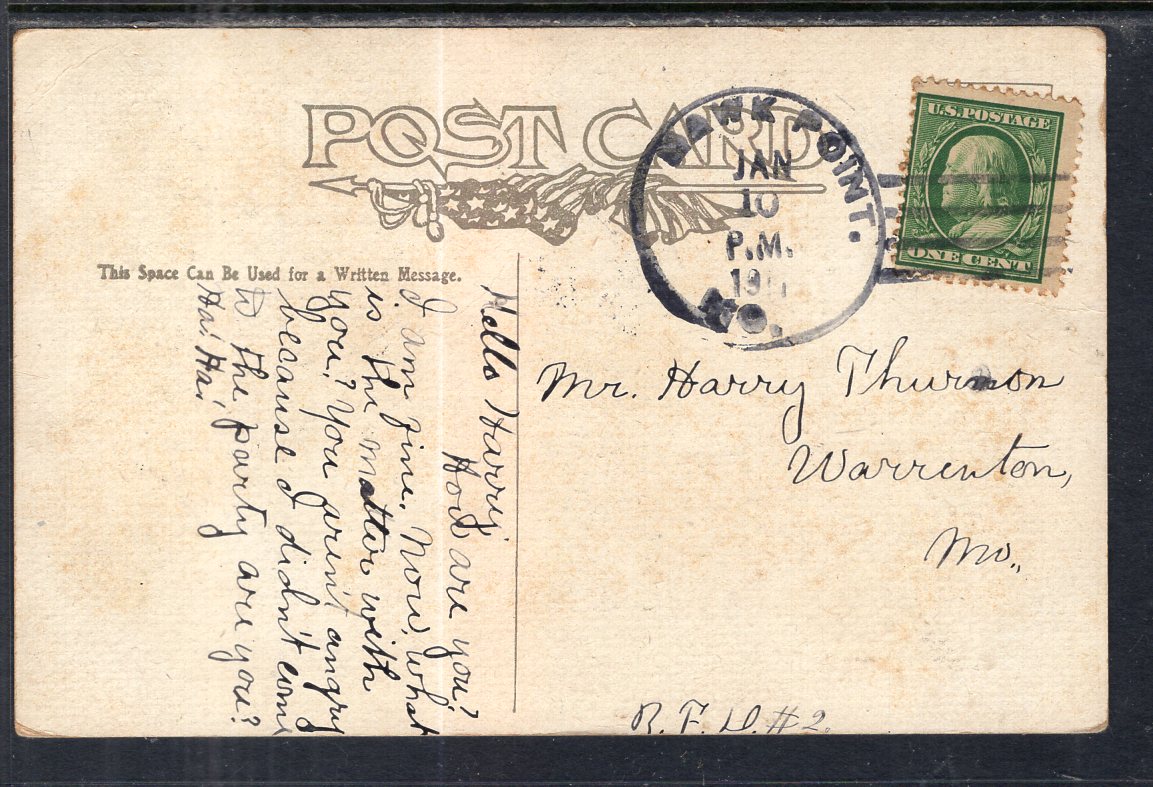 POST CARD
HAWK POINT.
JAN
10
P.M.
MO.
U.S. POSTAGE
ONE CENT
This Space Can Be Used for a Written Message.
Hello Harry,
How are you?
I am fine. Now, what
is the matter with
you? You aren't angry
because I didn't come
to the party are you?
Ha! Ha!
Mr. Harry Thurmon
Warrenton,
Mo.,
R. F. D. #2.